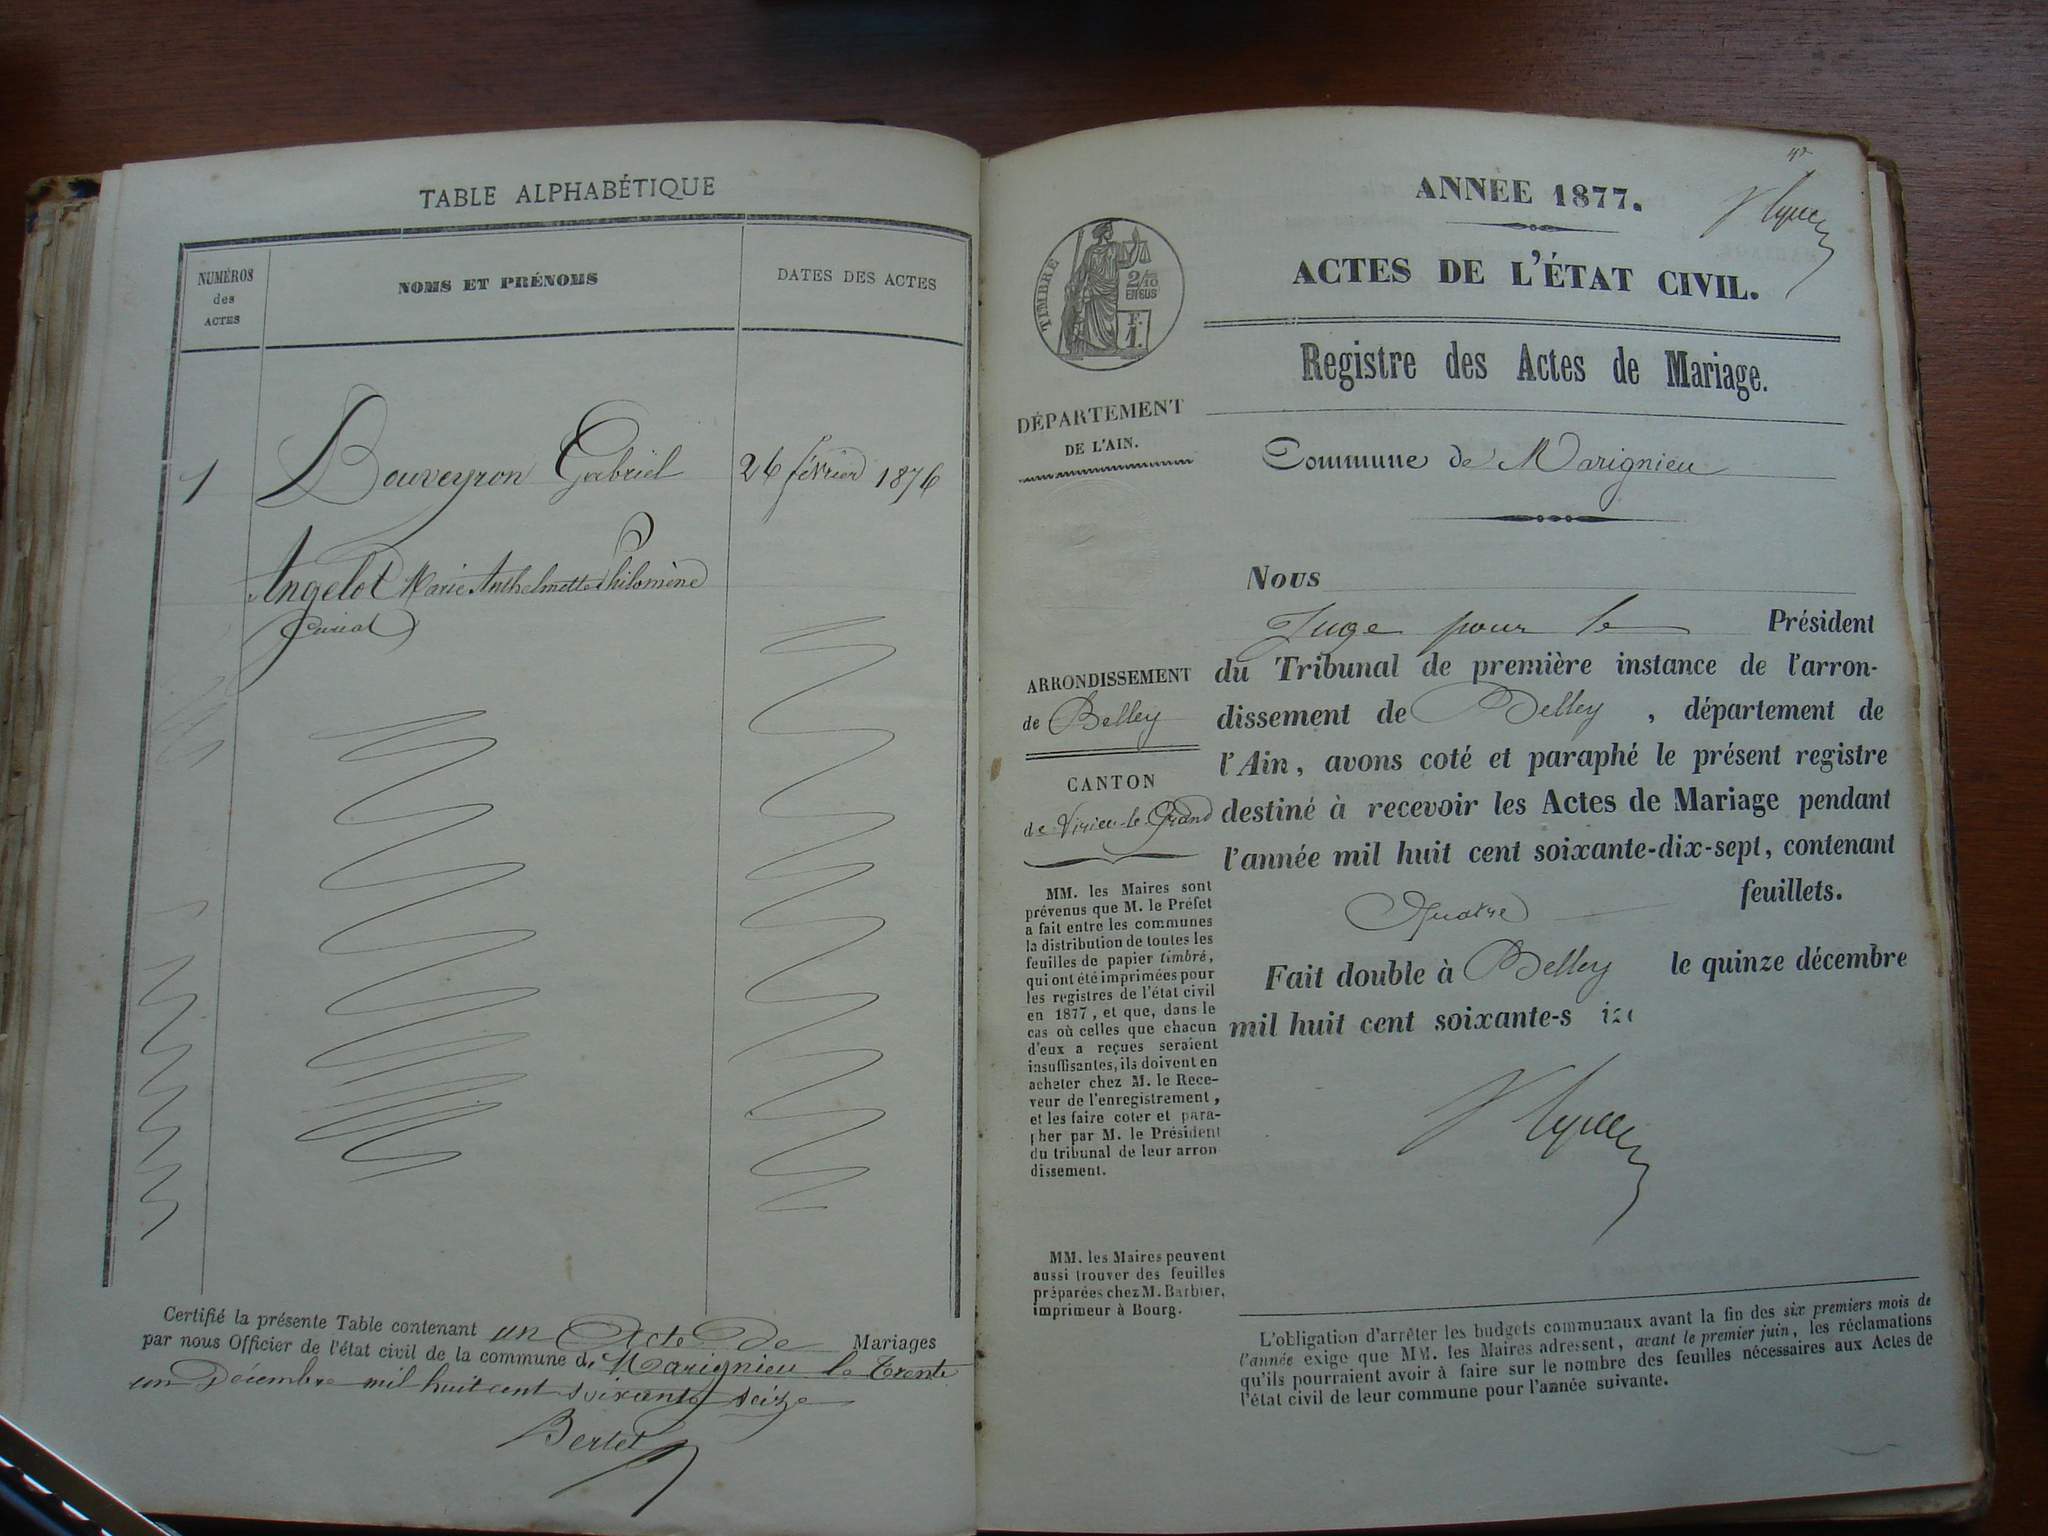 TABLE ALPHABÉTIQUE
NUMÉROS
des
ACTES
NOMS ET PRÉNOMS
DATES DES ACTES
1 Bouveyron Gabriel 26 février 1876
Angelot Marie Anthelmette Philomène
Certifié la présente Table contenant un Acte De Mariages
par nous Officier de l'état civil de la commune de Marignieu le Trente
un Décembre mil huit cent soixante seize
Bertet
ANNÉE 1877.
ACTES DE L'ÉTAT CIVIL.
TIMBRE
2/10
EN SUS
F.
1.
Registre des Actes de Mariage.
DÉPARTEMENT
DE L'AIN.
Commune de Marignieu
Nous
Juge pour le Président
du Tribunal de première instance de l'arron-
dissement de Belley, département de
l'Ain, avons coté et paraphé le présent registre
destiné à recevoir les Actes de Mariage pendant
l'année mil huit cent soixante-dix-sept, contenant
Quatre feuillets.
Fait double à Belley le quinze décembre
mil huit cent soixante-s ize
ARRONDISSEMENT
de Belley
CANTON
de Virieu-le-Grand
MM. les Maires sont
prévenus que M. le Préfet
a fait entre les communes
la distribution de toutes les
feuilles de papier timbré,
qui ont été imprimées pour
les registres de l'état civil
en 1877, et que, dans le
cas où celles que chacun
d'eux a reçues seraient
insuffisantes, ils doivent en
acheter chez M. le Rece-
veur de l'enregistrement,
et les faire coter et para-
pher par M. le Président
du tribunal de leur arron
dissement.
MM. les Maires peuvent
aussi trouver des feuilles
préparées chez M. Barbier,
imprimeur à Bourg.
L'obligation d'arrêter les budgets communaux avant la fin des six premiers mois de
l'année exige que MM. les Maires adressent, avant le premier juin, les réclamations
qu'ils pourraient avoir à faire sur le nombre des feuilles nécessaires aux Actes de
l'état civil de leur commune pour l'année suivante.